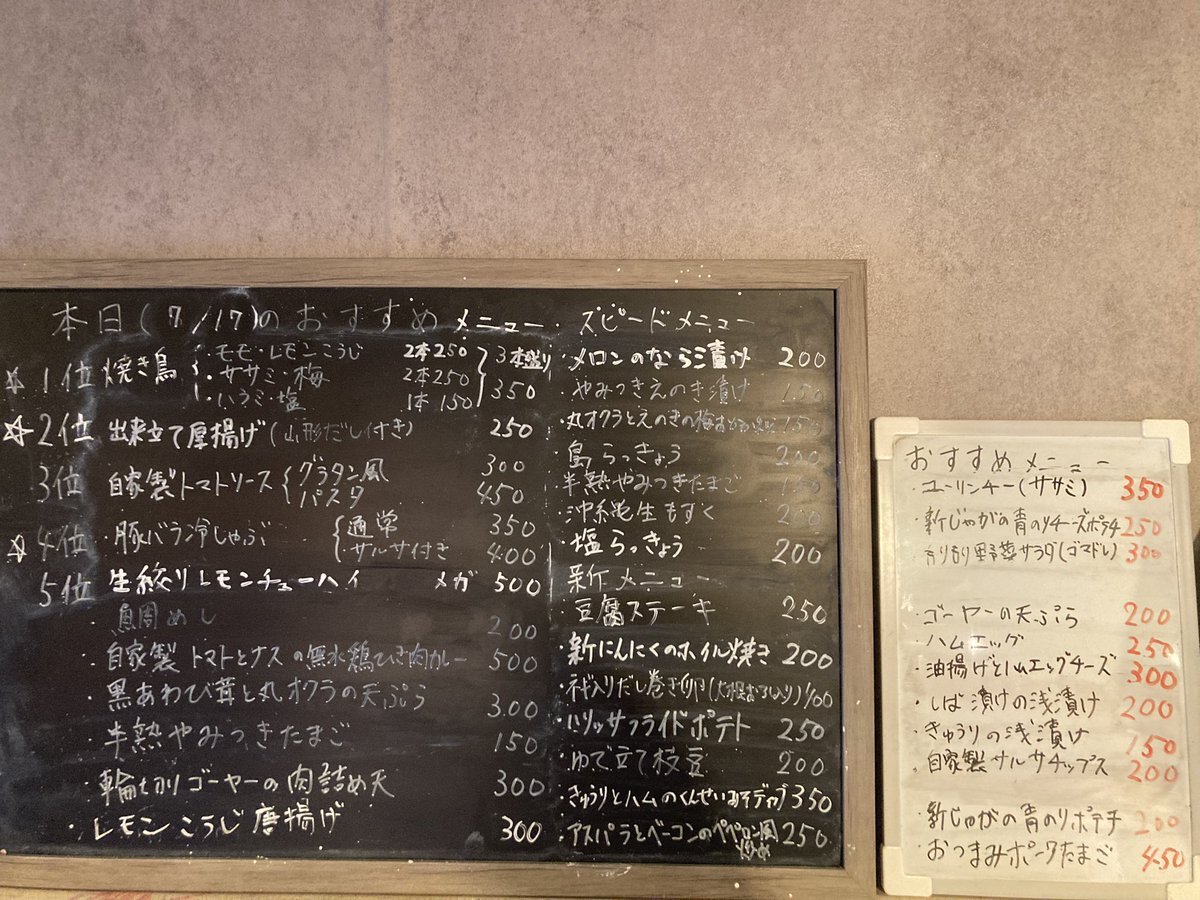 本日(7/17)のおすすめメニュー
☆1位 焼き鳥
・モモ・レモンこうじ 2本250
・ササミ・梅 2本250
・ハラミ・塩 1本150
3本盛り 350
☆2位 出来立て厚揚げ(山形だし付き) 250
3位 自家製トマトソース
グラタン風 300
パスタ 450
☆4位 豚バラ冷しゃぶ
通常 350
・サルサ付き 400
5位 生絞りレモンチューハイ メガ 500
めし 200
・自家製トマトとナスの無水鶏ひき肉カレー 500
・黒あわび茸と丸オクラの天ぷら 300
・半熟やみつきたまご 150
・輪切りゴーヤーの肉詰め天 300
・レモンこうじ唐揚げ 300
・スピードメニュー
・メロンのなら漬け 200
・やみつきえのき漬け 150
・丸オクラとえのきの梅おかか 150
・島らっきょう 200
・半熟やみつきたまご 150
・沖縄生もずく 200
・塩らっきょう 200
新作メニュー
・豆腐ステーキ 250
・新にんにくのホイル焼き 200
・ネギ入りだし巻き卵(大根おろし入り)
・ハリッサフライドポテト 250
・ゆで立て枝豆 200
・きゅうりとハムのくんせい 350
・アスパラとベーコンのペペロン風炒め 250
おすすめメニュー
・ユーリンチー(ササミ) 350
・新じゃがの青のりチーズポテチ 250
・野菜サラダ(ゴマドレ) 300
・ゴーヤーの天ぷら 200
・ハムエッグ 250
・油揚げとハムエッグチーズ 300
・しば漬けの浅漬け 200
・きゅうりの浅漬け 150
・自家製サルサチップス 200
・新じゃがの青のりポテチ 200
・おつまみポークたまご 450